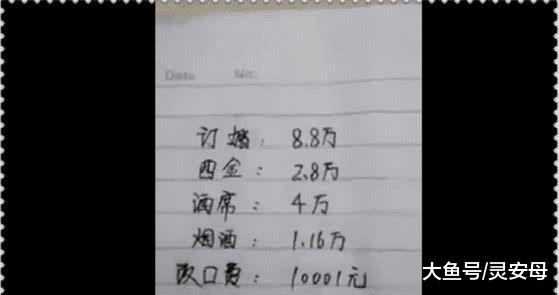 Date No.
订婚: 8.8万
四金: 2.8万
酒席: 4万
烟酒: 1.16万
改口费: 10001元
大鱼号/灵安母